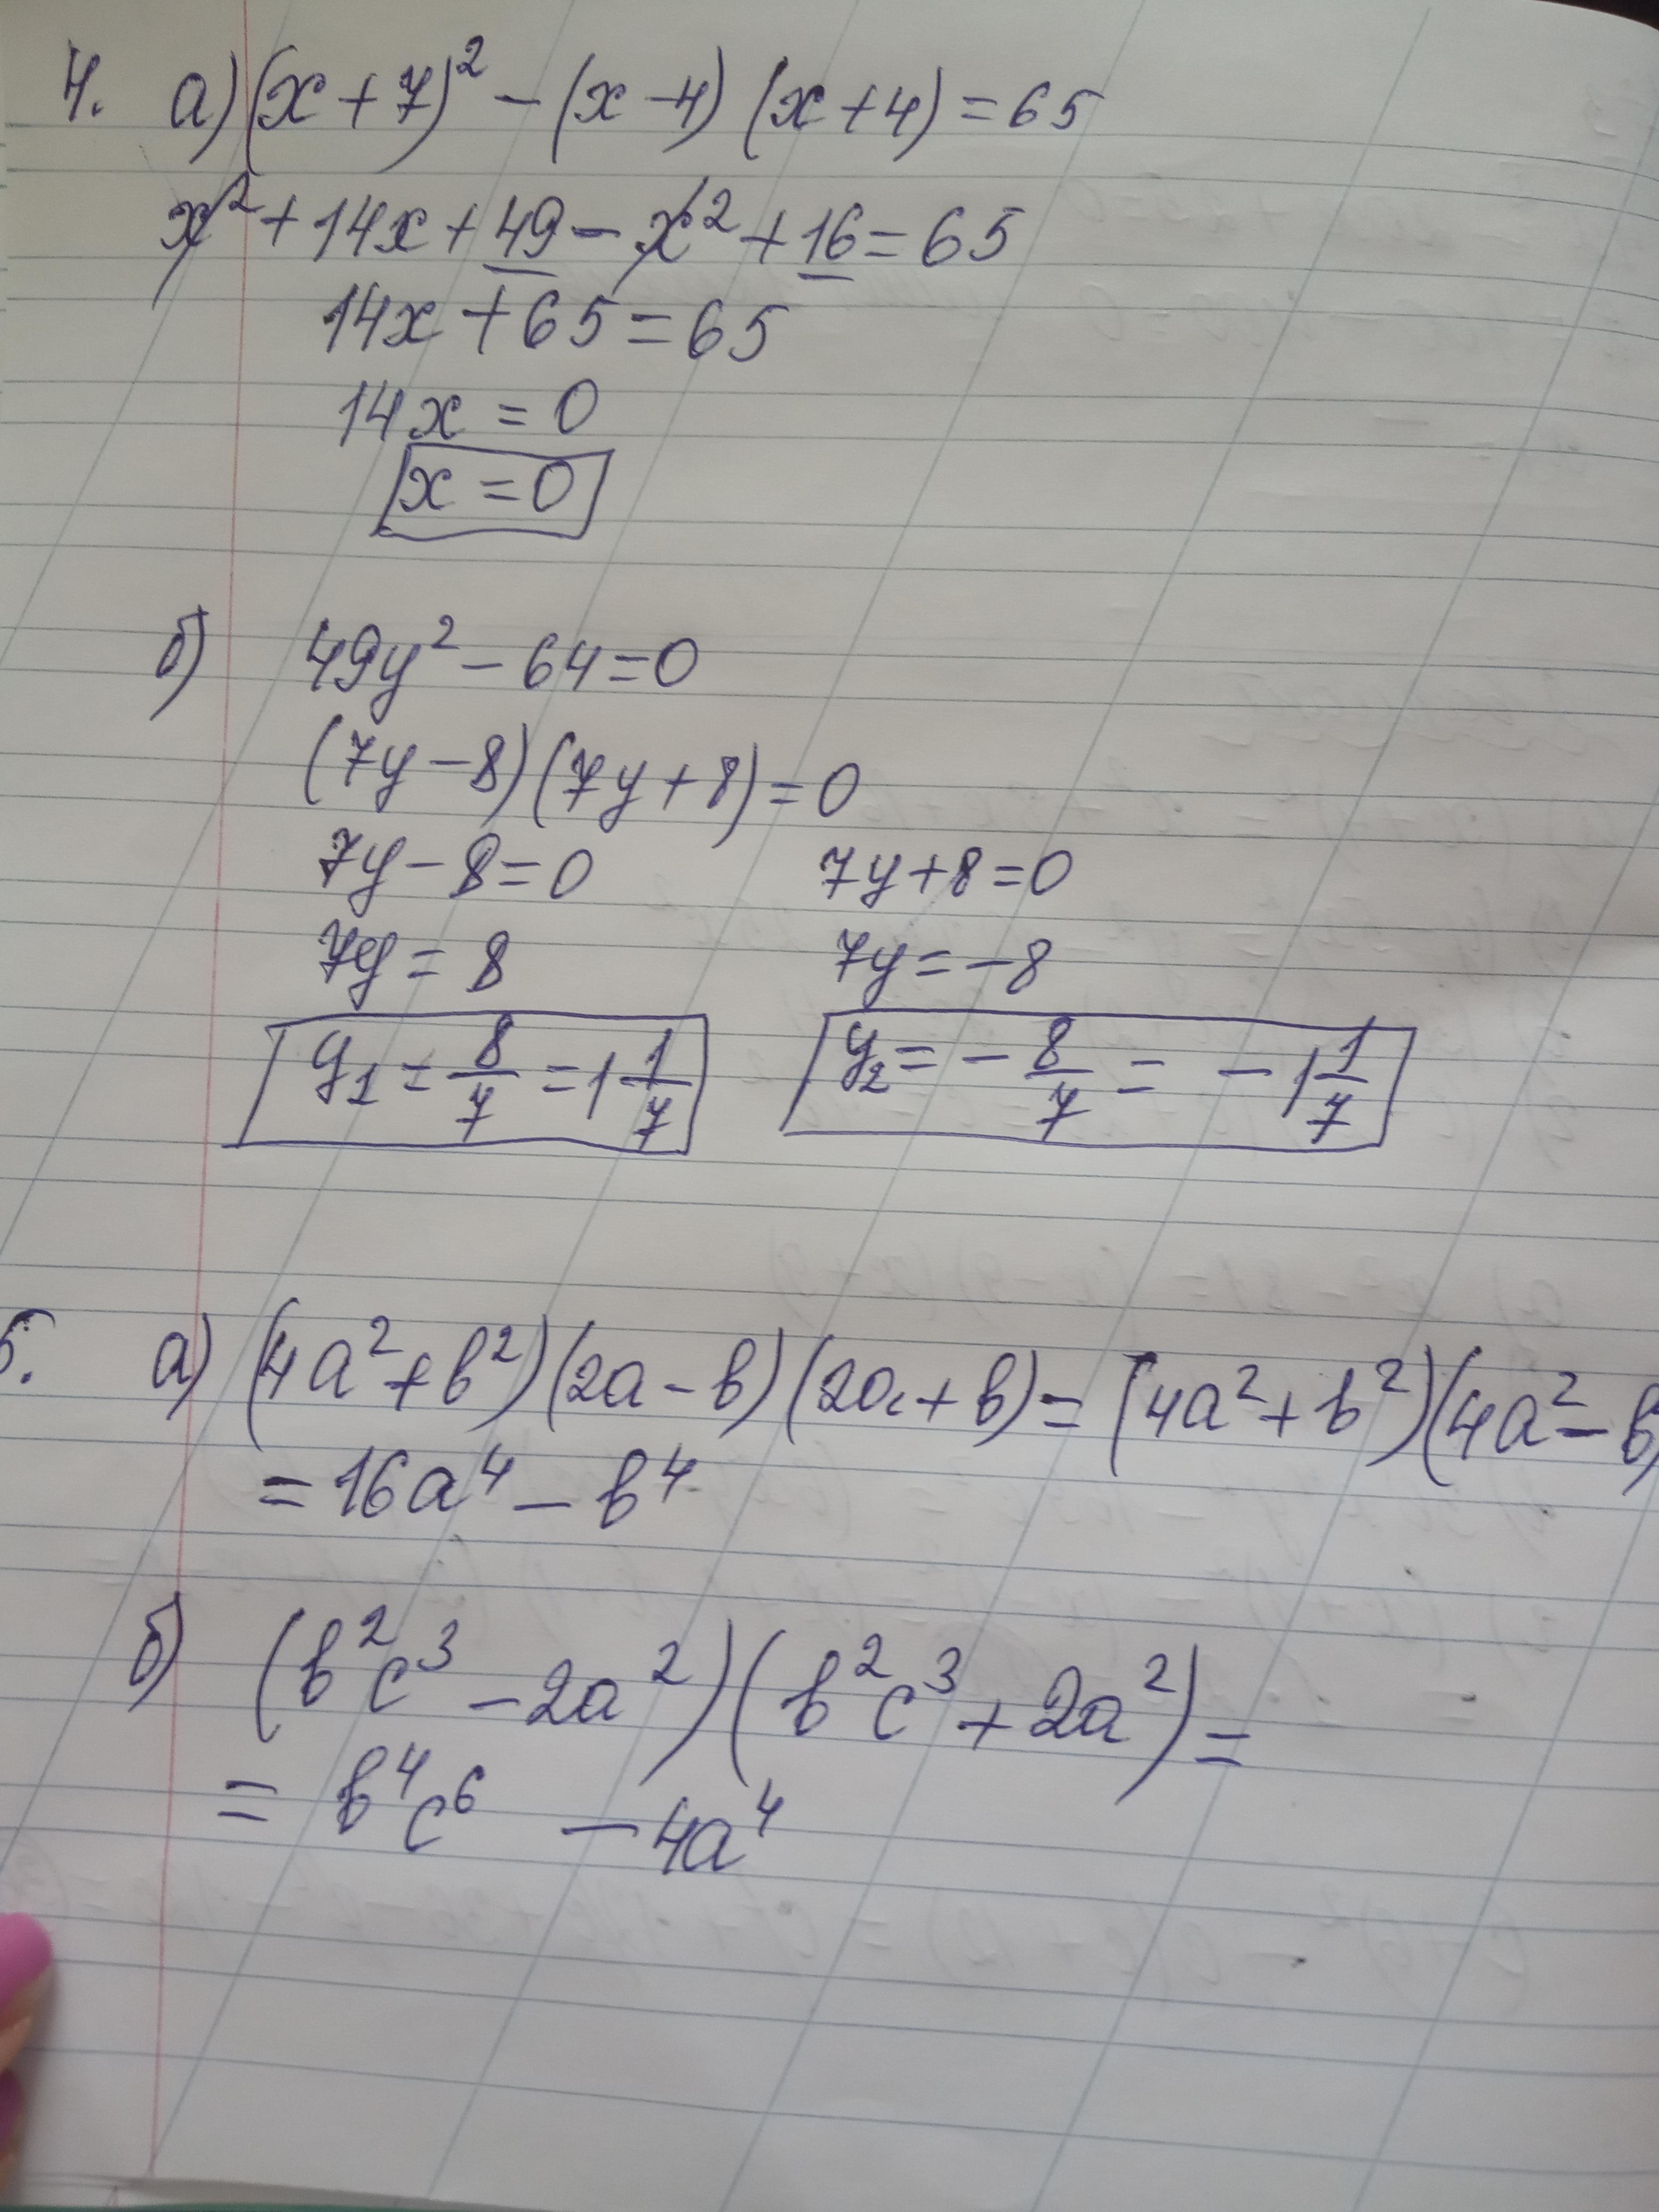 4. а) (x + 7)² − (x − 4) (x + 4) = 65
x² + 14x + 49 − x² + 16 = 65
14x + 65 = 65
14x = 0
x = 0
б) 49y² − 64 = 0
(7y − 8)(7y + 8) = 0
7y − 8 = 0 7y + 8 = 0
7y = 8 7y = −8
y₁ = 8/7 = 1 1/7 y₂ = − 8/7 = − 1 1/7
5. а) (4a² + b²)(2a − b)(2a + b) = (4a² + b²)(4a² − b
= 16a⁴ − b⁴
б) (b²c³ − 2a²)(b²c³ + 2a²) =
= b⁴c⁶ − 4a⁴